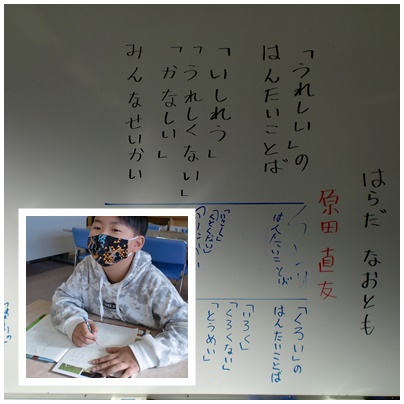 はらだ なおとも
原田 直友
「うれしい」の
はんたいことば
「いしれう」
「うれしくない」
「かなしい」
みんなせいかい
はんたいことば
「くろい」の
はんたいことば
「いろく」
「くろくない」
「とうめい」